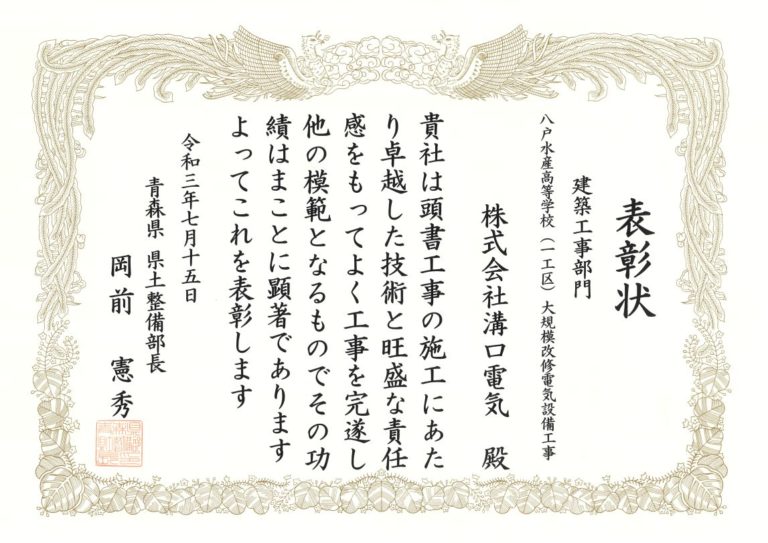 表彰状
建築工事部門
八戸水産高等学校（一工区）大規模改修電気設備工事
株式会社溝口電気　殿
貴社は頭書工事の施工にあた
り卓越した技術と旺盛な責任
感をもってよく工事を完遂し
他の模範となるものでその功
績はまことに顕著であります
よってこれを表彰します
令和三年七月十五日
青森県　県土整備部長
岡前　憲秀